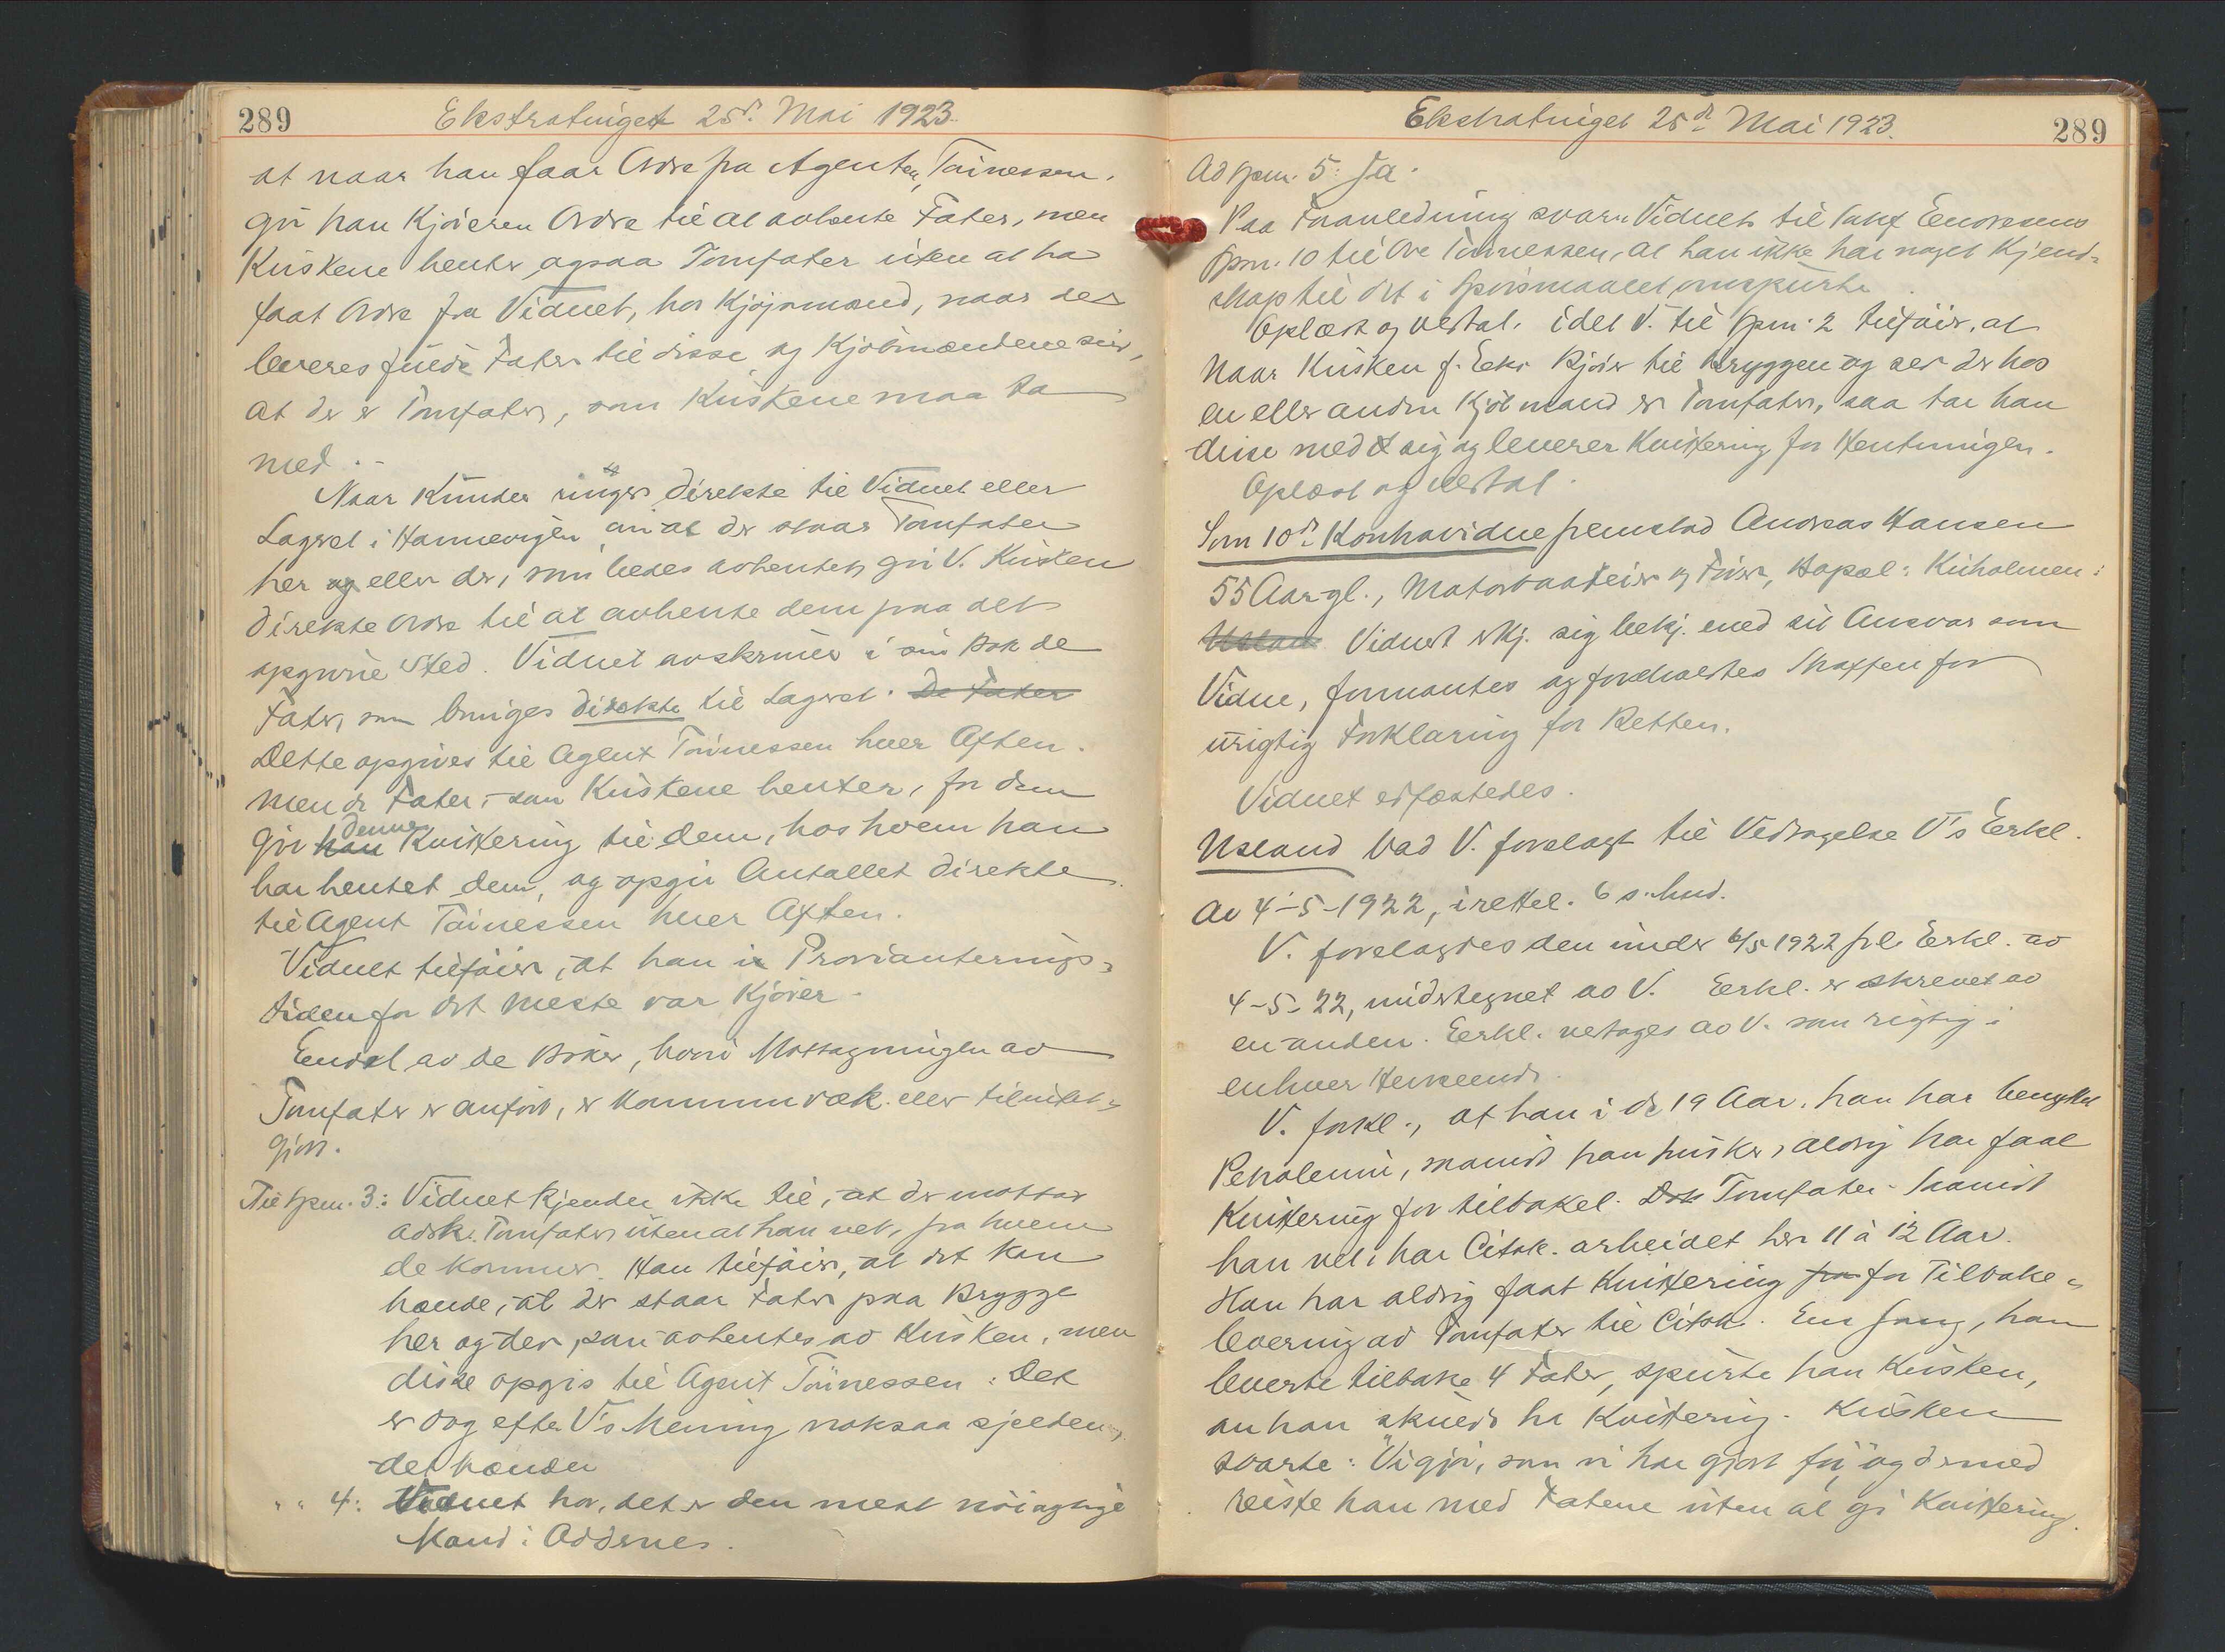 289
Ekstratinget 25de Mai 1923.
at naar han faar Ordre fra Agenten, Tønnessen,
gir han Kjøreren Ordre til at avhente Fater, men
Kuskene henter ogsaa Tomfater uten at ha
faat Ordre fra Vidnet, hos Kjøpmænd, naar der
leveres fulde Fater til disse og Kjøbmændene sier,
at der er Tomfater, som Kuskene maa ta
med.
Naar Kunder ringer direkte til Vidnet eller
Lageret i Hannevigen om at der staar Tomfater
her og eller der, som bedes avhentet, gir V. Kusken
direkte Ordre til at avhente dem paa det
opgivne Sted. Vidnet avskriver i sin Bok de
Fater, som bringes direkte til Lageret. De Fater
Dette opgives til Agent Tønnessen hver Aften.
Men de Fater, som Kuskene henter, for dem
gir han denne Kvittering til dem, hos hvem han
har hentet dem, og opgir Antallet direkte
til Agent Tønnessen hver Aften.
Vidnet tilføier, at han i Provianterings-
tiden for det meste var Kjører.
Endel av de Bøker, hvori Mottagningen av
Tomfater er anført, er kommen væk eller tilintet-
gjort.
Til Spm. 3: Vidnet kjender ikke til, at der mottas
adsk. Tomfater uten at han vet, fra hvem
de kommer. Han tilføier, at det kan
hænde, at der staar Fater paa Brygge
her og der, som avhentes av Kusken, men
disse opgis til Agent Tønnessen. Det
er dog efter V's Mening noksaa sjelden,
det hænder
" " 4: Vidnet tror, det er den mest nøiagtige
Mand i Oddernes.
Ekstratinget 25de Mai 1923.
289
Ad Spm. 5: Ja.
Paa Foranledning svarer Vidnet til Sakf. Eendresens
Spm. 10 til Ove Tønnessen, at han ikke har noget Kjend-
skap til det i Spørsmaalet omspurte.
Oplæst og vedtat, idet V. til Spm. 2 tilføier, at
naar Kusken f. Eks. kjører til Bryggen og ser der hos
en eller anden Kjøbmand er Tomfater, saa tar han
disse med sig og leverer Kvittering for Hentningen.
Oplæst og vedtat.
Som 10de Kontravidne fremstod Andreas Hansen
55 Aar gl., Motorbaateier og Fører, Bopæl: Kuholmen:
Usland Vidnet erkj. sig bekj. med sit Ansvar som
Vidne, formantes og foreholdtes Straffen for
urigtig Forklaring for Retten.
Vidnet edfæstedes.
Usland bad V. forelagt til Vedtagelse V's Erkl.
av 4-5-1922, i rettel. 6 s. hud.
V. forelagdes den under 6/5 1922 frl. Erkl. av
4-5-22, undertegnet av V. Erkl. er skrevet av
en anden. Erkl. vedtages av V. som rigtig i
enhver Henseende.
V. forkl., at han i de 19 Aar, han har benyttet
Petroleum, saavidt han husker, aldrig har faat
Kvittering for tilbakel. Tomfater. Saavidt
han vet, har Citsk. arbeidet her 11 à 12 Aar.
Han har aldrig faat Kvittering fra for Tilbake-
levering av Tomfater til Citsk. Een Gang, han
leverte tilbake 4 Fater, spurte han Kusken,
om han skulde ha Kvittering. Kusken
svarte: "Vi gjør, som vi har gjort før" og dermed
reiste han med Fatene uten at gi Kvittering.